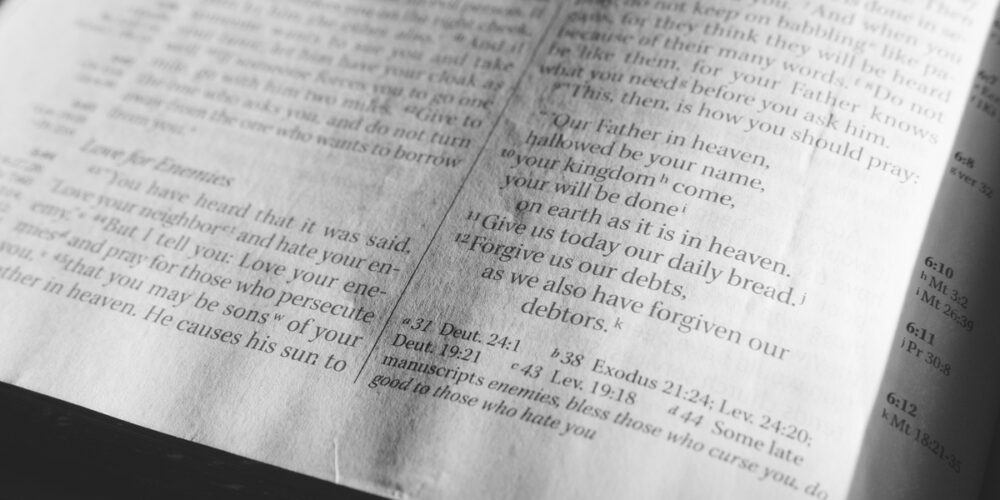 And if
and take
your cloak as
forces you to go one
mile, go with him two miles. Give to
the one who asks you, and do not turn
away from the one who wants to borrow
from you.
Love for Enemies
43“You have heard that it was said,
‘Love your neighbor c i and hate your en-
emy.’ 44But I tell you: Love your ene-
mies d and pray for those who persecute
you, 45that you may be sons w of your
Father in heaven. He causes his sun to
And when you
do not keep on babbling like pa-
gans, for they think they will be heard
because of their many words. Do not
be like them, for your Father knows
what you need g before you ask him.
“This, then, is how you should pray:
“‘Our Father in heaven,
hallowed be your name,
10your kingdom h come,
your will be done i
on earth as it is in heaven.
11Give us today our daily bread. j
12Forgive us our debts,
as we also have forgiven our
debtors. k
a31 Deut. 24:1 b38 Exodus 21:24; Lev. 24:20;
Deut. 19:21 c43 Lev. 19:18 d44 Some late
manuscripts enemies, bless those who curse you, do
good to those who hate you
6:8
g ver 32
6:10
h Mt 3:2
i Mt 26:39
6:11
j Pr 30:8
6:12
k Mt 18:21-35